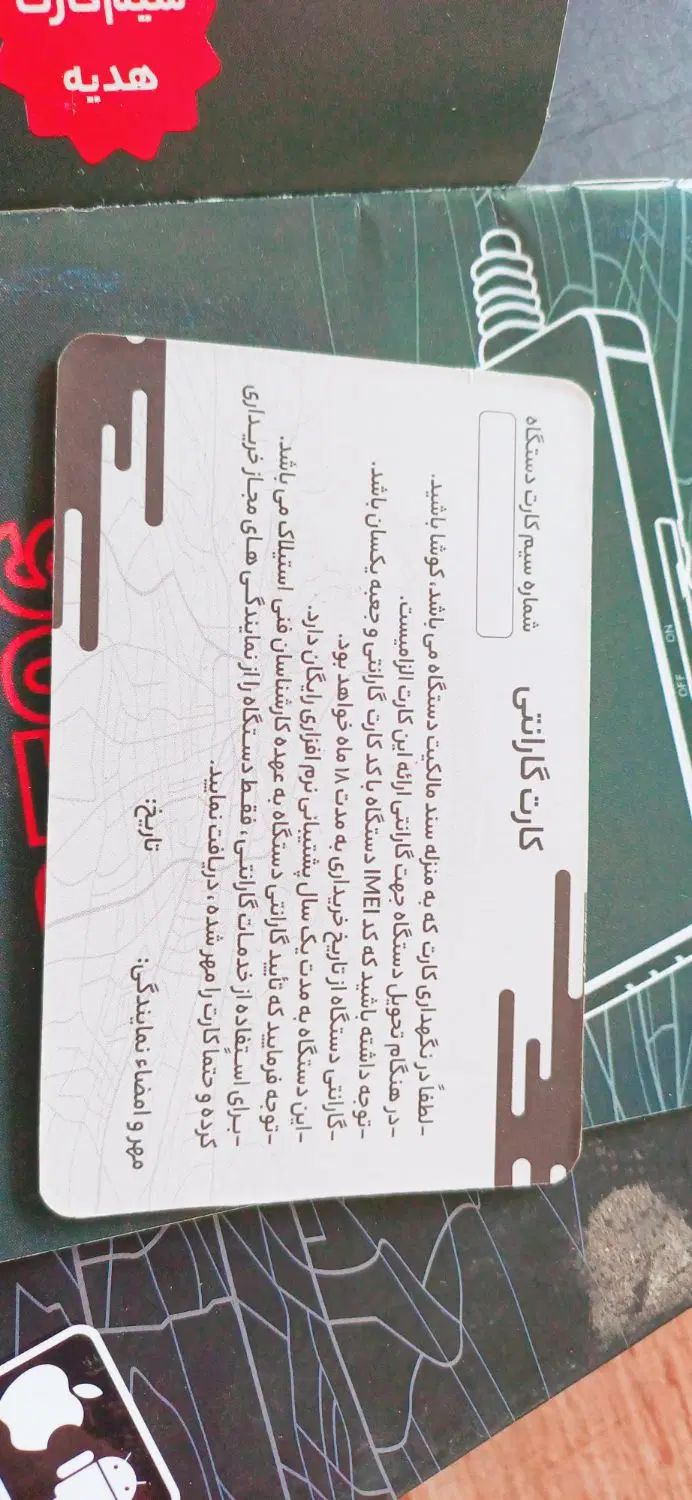 هدیه
شماره سیم کارت دستگاه
کارت گارانتی
-لطفاً در نگهداری کارت که به منزله سند مالکیت دستگاه می باشد، کوشا باشید.
-در هنگام تحویل دستگاه جهت گارانتی ارائه این کارت الزامیست.
-توجه داشته باشید که کد IMEI دستگاه با کد کارت گارانتی و جعبه یکسان باشد.
-گارانتی دستگاه از تاریخ خریداری به مدت ۱۸ ماه خواهد بود.
-این دستگاه به مدت یک سال پشتیبانی نرم افزاری رایگان دارد.
-توجه فرمایید که تأیید گارانتی دستگاه به عهده کارشناسان فنی استیلاک می باشد.
-برای استفاده از خدمات گارانتی، فقط دستگاه را از نمایندگی های مجاز خریداری
کرده و حتماً کارت را مهر شده، دریافت نمایید.
مهر و امضاء نمایندگی:
تاریخ:
ON
OFF